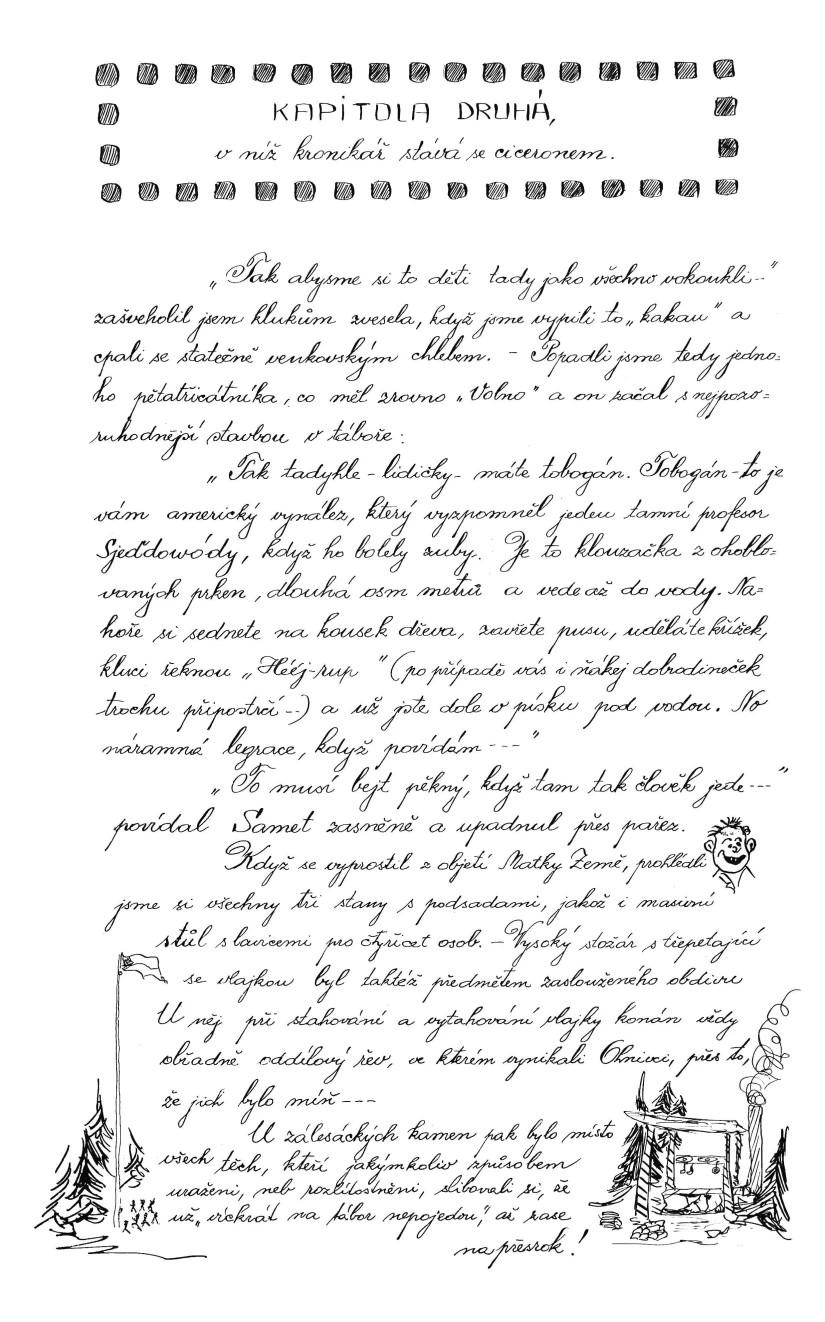 KAPITOLA DRUHÁ,
v níž kronikář stává se ciceronem.
„Tak abysme si to děti tady jako všechno vokoukli--"
zašveholil jsem klukům zvesela, když jsme vypili to „kakau" a
cpali se statečně venkovským chlebem. - Popadli jsme tedy jedno=
ho pětatřicátníka, co měl zrovno „Volno" a on začal s nejpozo=
ruhodnější stavbou v táboře:
„Tak tadyhle - lidičky - máte tobogán. Tobogán - to je
vám americký vynález, který vyzpomněl jeden tamní profesor
Sjeďdowódy, když ho bolely zuby. Je to klouzačka z ohoblo=
vaných prken, dlouhá osm metrů a vede až do vody. Na=
hoře si sednete na kousek dřeva, zavřete pusu, uděláte křížek,
kluci řeknou „Hééj-rup" (po případě vás i ňákej dobrodineček
trochu připostrčí--) a už jste dole v písku pod vodou. No
náramná legrace, když povídám---"
„To musí bejt pěkný, když tam tak člověk jede---"
povídal Samet zasněně a upadnul přes pařez.
Když se vyprostil z objetí Matky Země, prohlédli
jsme si všechny tři stany s podsadami, jakož i masivní
stůl s lavicemi pro čtyřicet osob. - Vysoký stožár s třepetající
se vlajkou byl taktéž předmětem zaslouženého obdivu
U něj při stahování a vytahování vlajky konán vždy
obřadně oddílový řev, ve kterém vynikali Ohnivci, přes to,
že jich bylo míň---
U zálesáckých kamen pak bylo místo
všech těch, kteří jakýmkoliv způsobem
uraženi, neb rozlítostněni, slibovali si, že
už „víckrát na tábor nepojedou", až zase
na přesrok!